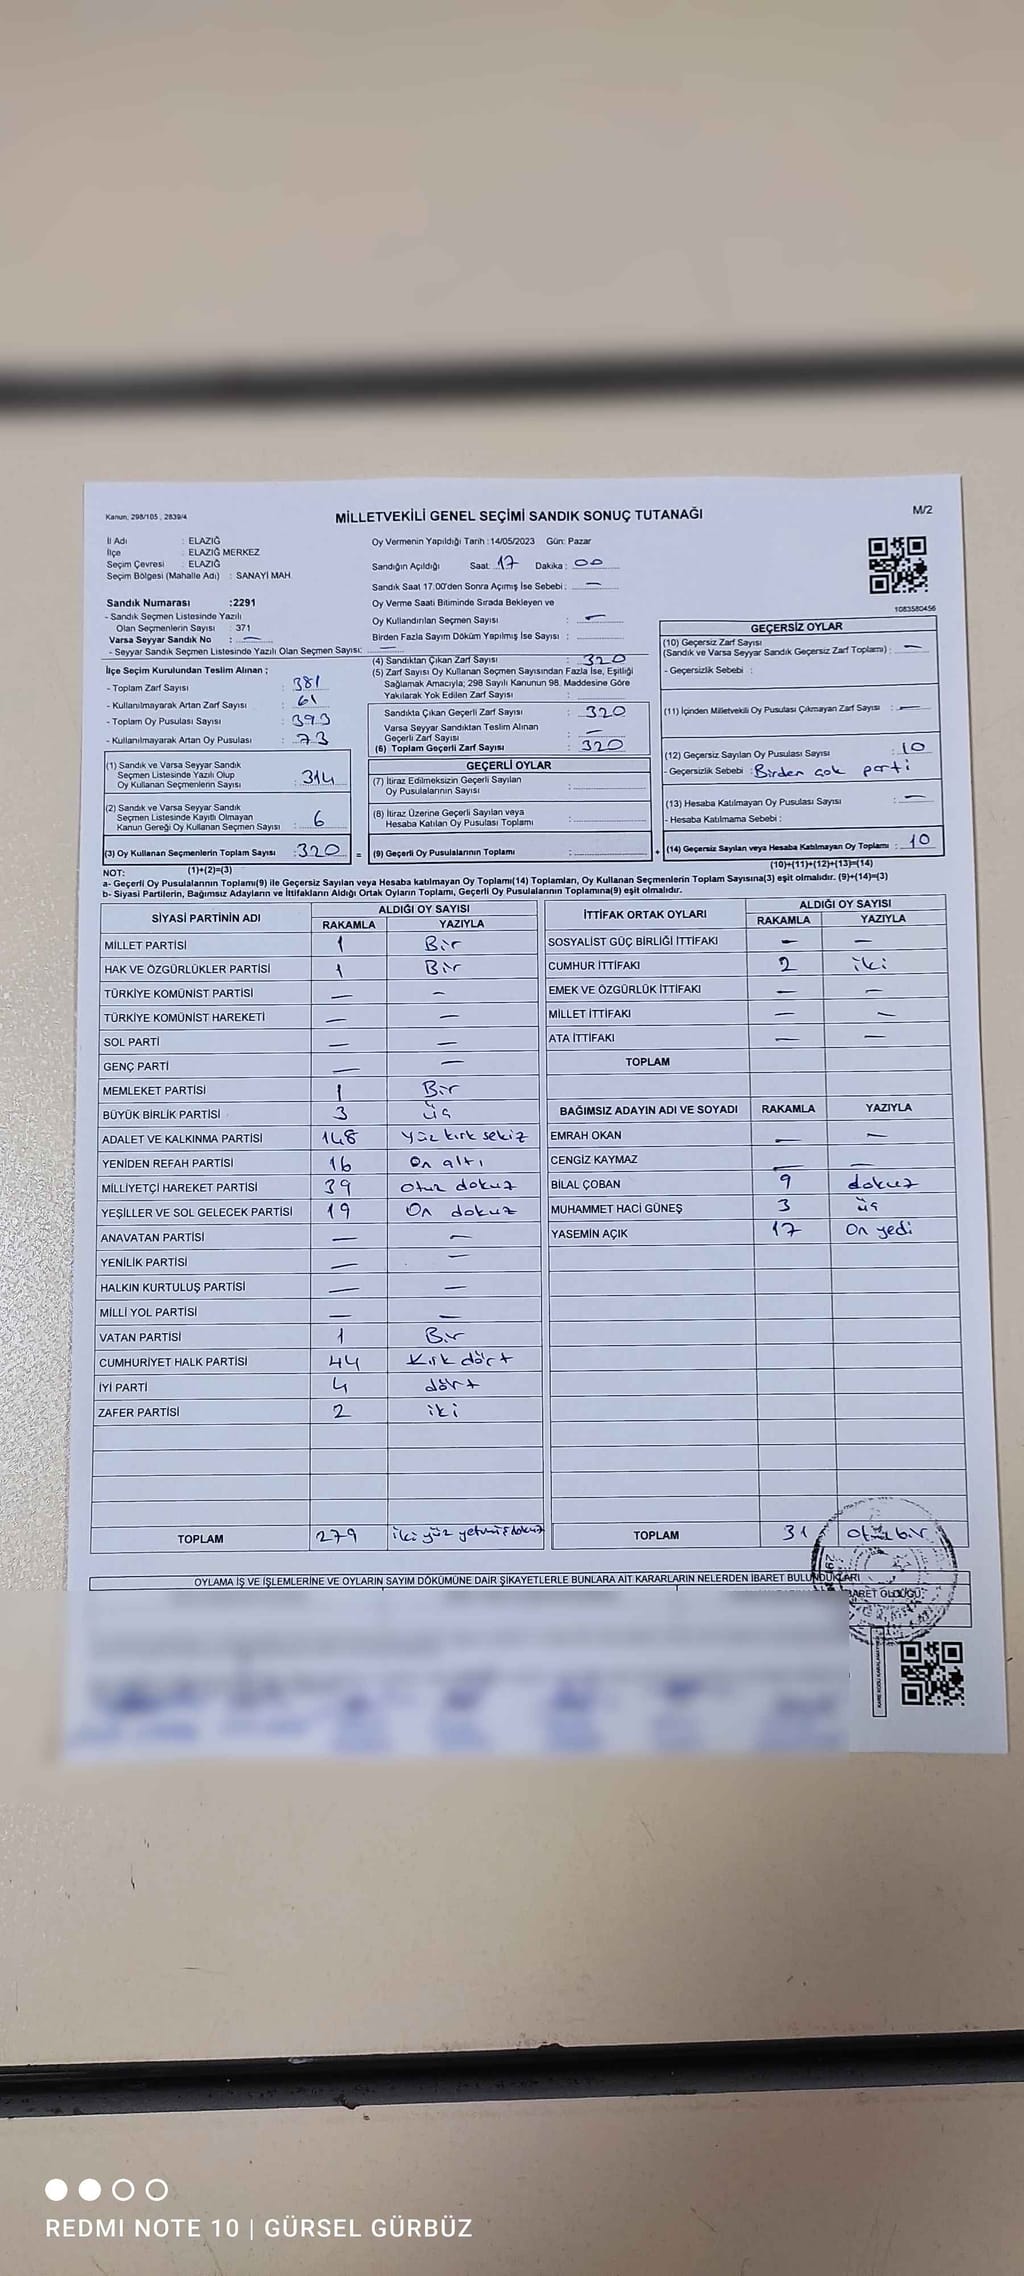 Kanun, 298/105 , 2839/4
MİLLETVEKİLİ GENEL SEÇİMİ SANDIK SONUÇ TUTANAĞI
M/2
İl Adı : ELAZIĞ
İlçe : ELAZIĞ MERKEZ
Seçim Çevresi : ELAZIĞ
Seçim Bölgesi (Mahalle Adı) : SANAYİ MAH
Oy Vermenin Yapıldığı Tarih :14/05/2023 Gün: Pazar
Sandığın Açıldığı Saat: 17 Dakika : 00
Sandık Saat 17:00'den Sonra Açımış İse Sebebi : —
Oy Verme Saati Bitiminde Sırada Bekleyen ve
Oy Kullandırılan Seçmen Sayısı : —
Birden Fazla Sayım Döküm Yapılmış İse Sayısı :
1083580456
Sandık Numarası :2291
- Sandık Seçmen Listesinde Yazılı
Olan Seçmenlerin Sayısı : 371
Varsa Seyyar Sandık No : —
- Seyyar Sandık Seçmen Listesinde Yazılı Olan Seçmen Sayısı: —
İlçe Seçim Kurulundan Teslim Alınan ;
- Toplam Zarf Sayısı : 381
- Kullanılmayarak Artan Zarf Sayısı : 61
- Toplam Oy Pusulası Sayısı : 393
- Kullanılmayarak Artan Oy Pusulası : 73
(1) Sandık ve Varsa Seyyar Sandık
Seçmen Listesinde Yazılı Olup
Oy Kullanan Seçmenlerin Sayısı : 314
(2) Sandık ve Varsa Seyyar Sandık
Seçmen Listesinde Kayıtlı Olmayan
Kanun Gereği Oy Kullanan Seçmen Sayısı : 6
(3) Oy Kullanan Seçmenlerin Toplam Sayısı :320
(4) Sandıktan Çıkan Zarf Sayısı : 320
(5) Zarf Sayısı Oy Kullanan Seçmen Sayısından Fazla İse, Eşitliği
Sağlamak Amacıyla; 298 Sayılı Kanunun 98. Maddesine Göre
Yakılarak Yok Edilen Zarf Sayısı :
Sandıkta Çıkan Geçerli Zarf Sayısı : 320
Varsa Seyyar Sandıktan Teslim Alınan
Geçerli Zarf Sayısı : —
(6) Toplam Geçerli Zarf Sayısı : 320
GEÇERLİ OYLAR
(7) İtiraz Edilmeksizin Geçerli Sayılan
Oy Pusulalarının Sayısı :
(8) İtiraz Üzerine Geçerli Sayılan veya
Hesaba Katılan Oy Pusulası Toplamı :
= (9) Geçerli Oy Pusulalarının Toplamı :
GEÇERSİZ OYLAR
(10) Geçersiz Zarf Sayısı
(Sandık ve Varsa Seyyar Sandık Geçersiz Zarf Toplamı) : —
- Geçersizlik Sebebi :
(11) İçinden Milletvekili Oy Pusulası Çıkmayan Zarf Sayısı : —
(12) Geçersiz Sayılan Oy Pusulası Sayısı : 10
- Geçersizlik Sebebi :Birden çok parti
(13) Hesaba Katılmayan Oy Pusulası Sayısı : —
- Hesaba Katılmama Sebebi :
+ (14) Geçersiz Sayılan veya Hesaba Katılmayan Oy Toplamı : 10
NOT: (1)+(2)=(3)
(10)+(11)+(12)+(13)=(14)
a- Geçerli Oy Pusulalarının Toplamı(9) ile Geçersiz Sayılan veya Hesaba katılmayan Oy Toplamı(14) Toplamları, Oy Kullanan Seçmenlerin Toplam Sayısına(3) eşit olmalıdır. (9)+(14)=(3)
b- Siyasi Partilerin, Bağımsız Adayların ve İttifakların Aldığı Ortak Oyların Toplamı, Geçerli Oy Pusulalarının Toplamına(9) eşit olmalıdır.
SİYASİ PARTİNİN ADI ALDIĞI OY SAYISI
RAKAMLA YAZIYLA
MİLLET PARTİSİ 1 Bir
HAK VE ÖZGÜRLÜKLER PARTİSİ 1 Bir
TÜRKİYE KOMÜNİST PARTİSİ — —
TÜRKİYE KOMÜNİST HAREKETİ — —
SOL PARTİ — —
GENÇ PARTİ — —
MEMLEKET PARTİSİ 1 Bir
BÜYÜK BİRLİK PARTİSİ 3 üç
ADALET VE KALKINMA PARTİSİ 148 Yüz kırk sekiz
YENİDEN REFAH PARTİSİ 16 On altı
MİLLİYETÇİ HAREKET PARTİSİ 39 Otuz dokuz
YEŞİLLER VE SOL GELECEK PARTİSİ 19 On dokuz
ANAVATAN PARTİSİ — —
YENİLİK PARTİSİ — —
HALKIN KURTULUŞ PARTİSİ — —
MİLLİ YOL PARTİSİ — —
VATAN PARTİSİ 1 Bir
CUMHURİYET HALK PARTİSİ 44 Kırk dört
İYİ PARTİ 4 dört
ZAFER PARTİSİ 2 iki
TOPLAM 279 iki yüz yetmiş dokuz
İTTİFAK ORTAK OYLARI ALDIĞI OY SAYISI
RAKAMLA YAZIYLA
SOSYALİST GÜÇ BİRLİĞİ İTTİFAKI — —
CUMHUR İTTİFAKI 2 iki
EMEK VE ÖZGÜRLÜK İTTİFAKI — —
MİLLET İTTİFAKI — —
ATA İTTİFAKI — —
TOPLAM
BAĞIMSIZ ADAYIN ADI VE SOYADI RAKAMLA YAZIYLA
EMRAH OKAN — —
CENGİZ KAYMAZ — —
BİLAL ÇOBAN 9 dokuz
MUHAMMET HACİ GÜNEŞ 3 üç
YASEMİN AÇIK 17 On yedi
TOPLAM 31 Otuz bir
OYLAMA İŞ VE İŞLEMLERİNE VE OYLARIN SAYIM DÖKÜMÜNE DAİR ŞİKAYETLERLE BUNLARA AİT KARARLARIN NELERDEN İBARET BULUNDUKLARI
BARET OLDUĞU
REDMI NOTE 10 | GÜRSEL GÜRBÜZ